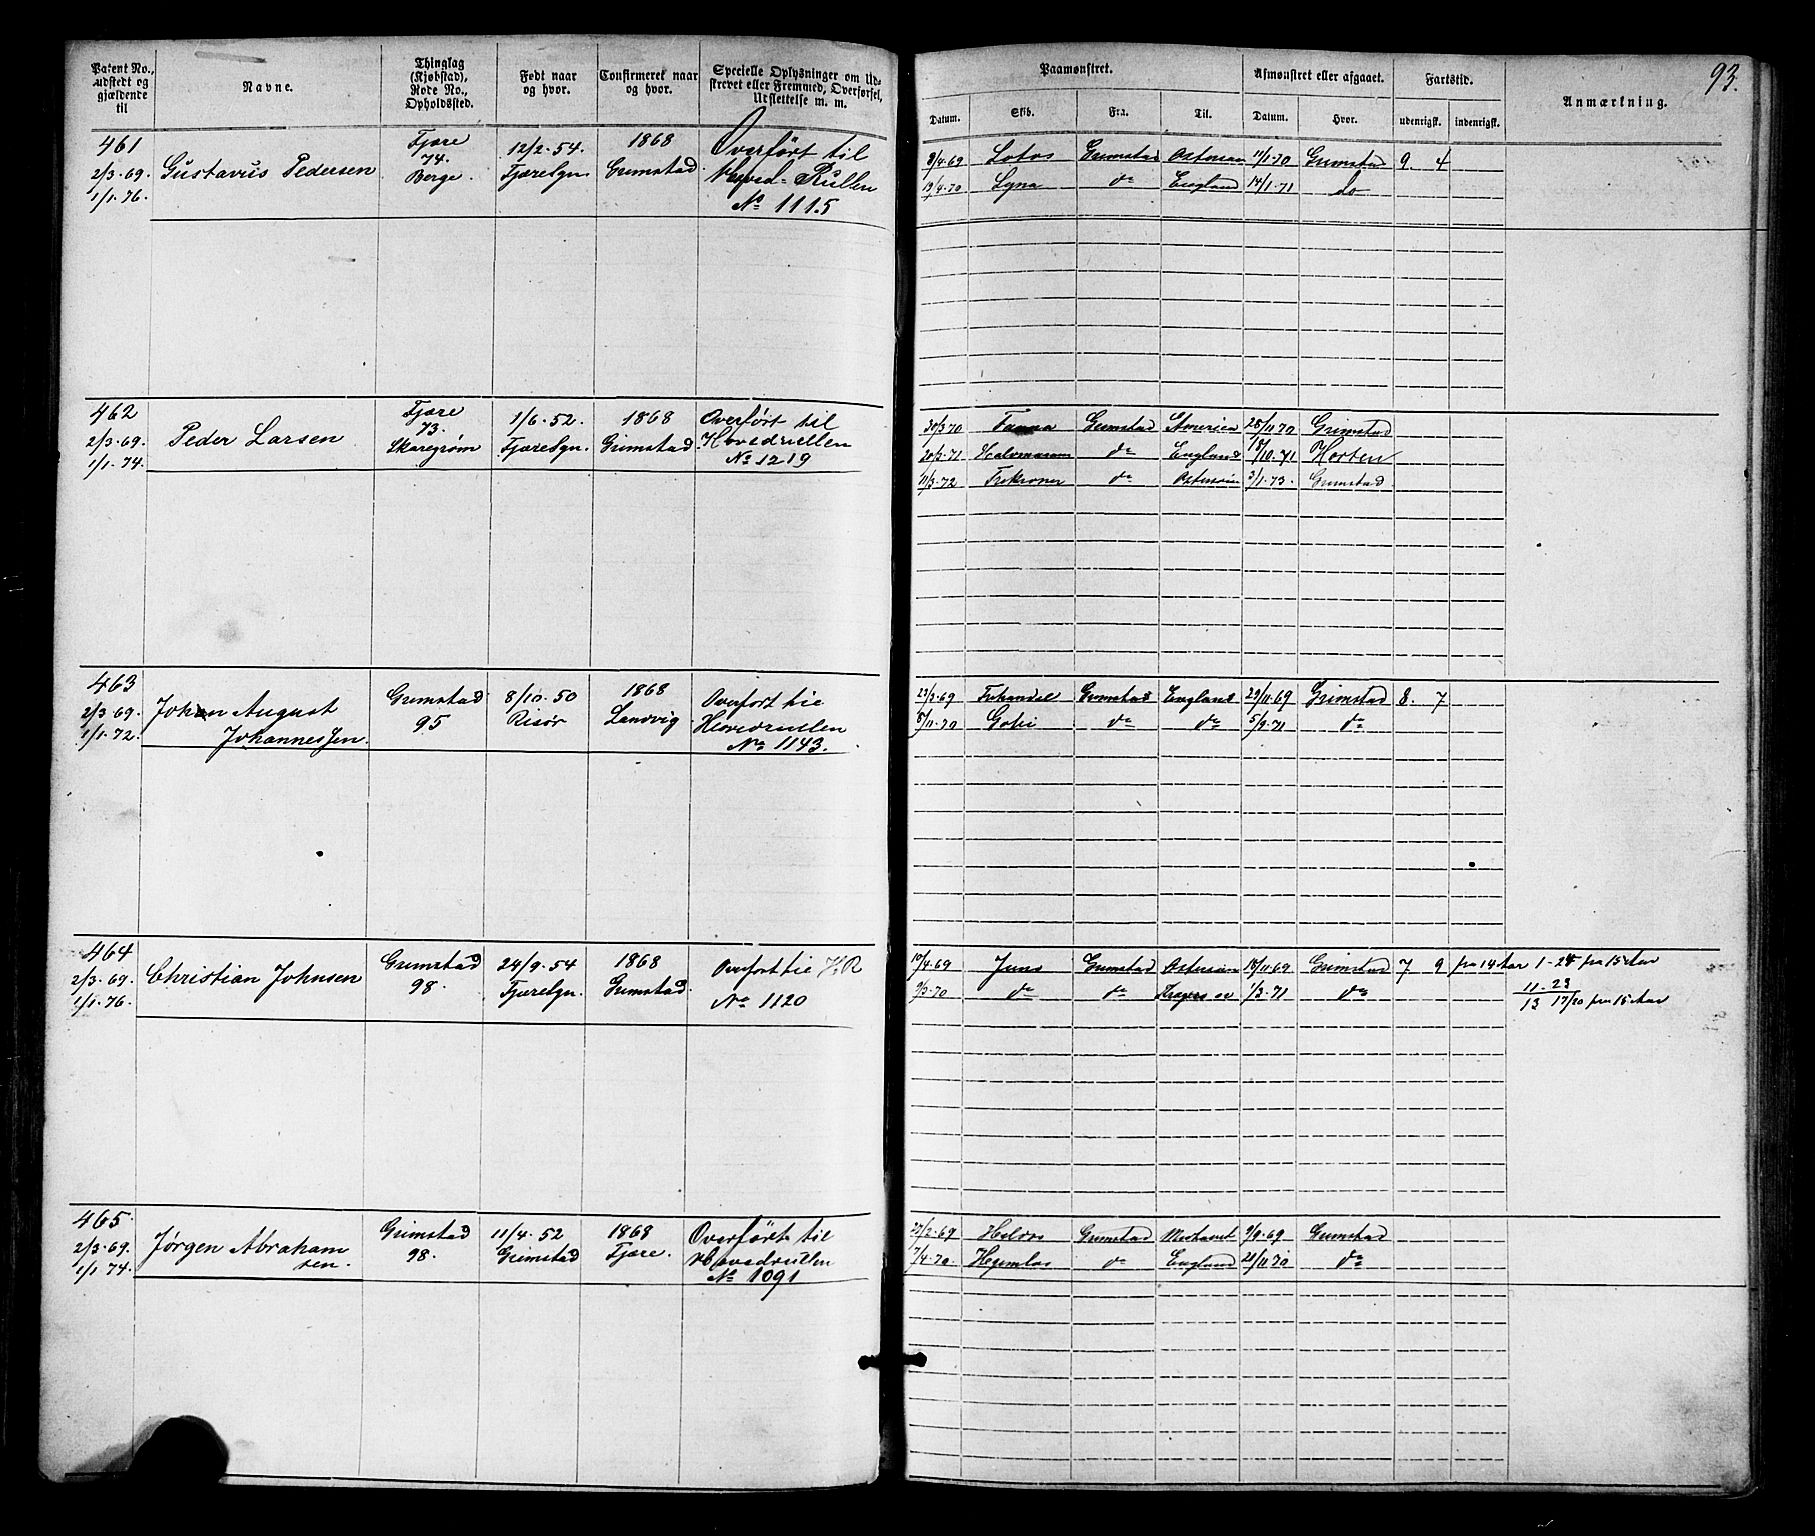 93.
Patent No., udstedt og gjældende til
Navne.
Thinglag (Kjøbstad), Rode No., Opholdssted.
Født naar og hvor.
Confirmeret naar og hvor.
Specielle Oplysninger om Udskrevet eller Fremmed, Overførsel, Udslettelse m. m.
Paamønstret.
Afmønstret eller afgaaet.
Fartstid.
Anmærkning.
Datum. Skib. Fra. Til. Datum. Hvor. udenrigsk. indenrigsk.
461
2/3.69.
1/1.76.
Gustavus Pedersen
Fjære
74.
Berge
12/2.54.
Fjærebgn.
1868
Grimstad
Overført til
Hoved-Rullen
No 1115
8/4.69 Lotos Grimstad Østersøen 17/1.70 Grimstad 9 4
19/4.70 Lyna do England 14/1.71 do
462
2/3.69.
1/1.74.
Peder Larsen
Fjære
73.
Skaregrøm
1/6.52.
Fjærebgn.
1868
Grimstad
Overført til
Hovedrullen
No 1219
30/3 70 Grimstad America 28/11 70 Grimstad
20/3.71 do England 18/10.71 Horten
11/3.72 Trekroner do Østersøen 3/1.73. Grimstad
463
2/3.69.
1/1.72.
Johan August
Johannessen.
Grimstad
95
8/10.50
Risør
1868
Landvig
Overført til
Hovedrullen
No 1143.
23/3.69 Frihandel Grimstad England 29/11.69 Grimstad 8. 7
8/11.70 do do 5/9.71 do
464
2/3.69.
1/1.76.
Christian Johnsen
Grimstad
98.
24/9.54
Fjærebgn.
1868
Grimstad
Overført til H.R
No 1120
10/4.69 Juno Grimstad Østersøen 18/11.69 Grimstad 7 9 fra 14 Aar 1-28 fra 15 Aar
9/3.70 do do 1/3.71 do 11-23
13 17/20 fra 15 Aar
465.
2/3.69.
1/1.74.
Jørgen Abraham
sen.
Grimstad
98.
11/4.52
Grimstad
1868
Fjære.
Overført til
Hovedrullen
No 1091
27/2.69 Grimstad 9/9.69 Grimstad
7/4.70. do England 21/11.70 do